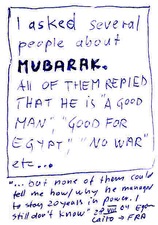 I asked several
people about
MUBARAK.
All OF THEM REPIED
THAT HE is "A GOOD
MAN", "GOOD FOR
EGYPT", "NO WAR"
etc...
"... but none of them could
tell me how/why he manages
to stay 20 years in power. I
still don't know" 27 VIII 04
Cairo → FRA